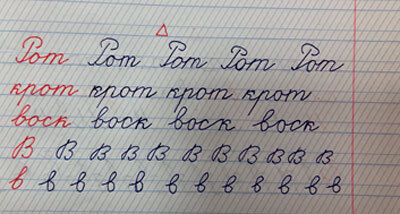 Рот Рот Рот Рот Рот
крот крот крот крот
воск воск воск воск
В В В В В В В В В В В
в в в в в в в в в в в в в